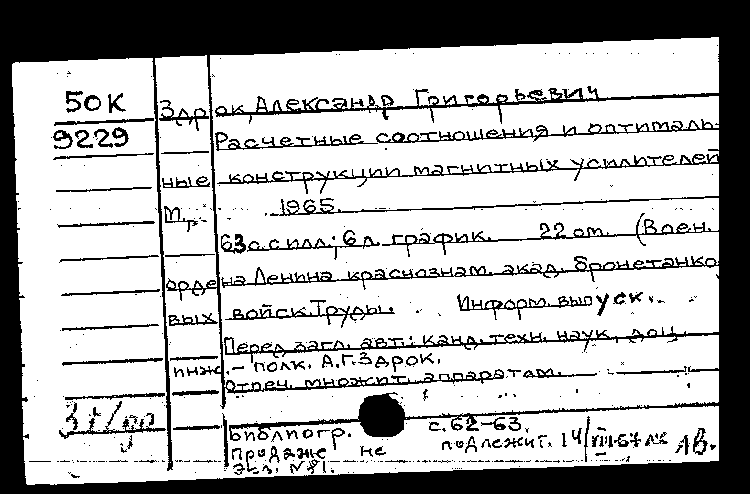 50К
Здрок, Александр Григорьевич
9229
Расчетные соотношения и оптималь-
ные конструкции магнитных усилителей
1965.
63 с с илл; 6 л. график. 22 см. (Воен.
ордена Ленина краснознам. акад. бронетанко
вых войск. Труды. Информ. выпуск.
Перед загл. авт.: канд. техн. наук, доц.
инж. – полк. А.Г. Здрок.
Отпеч. множит. аппаратом.
Библиогр. с. 62–63.
Продаже не подлежит. 14/III-67
Экз. №81.